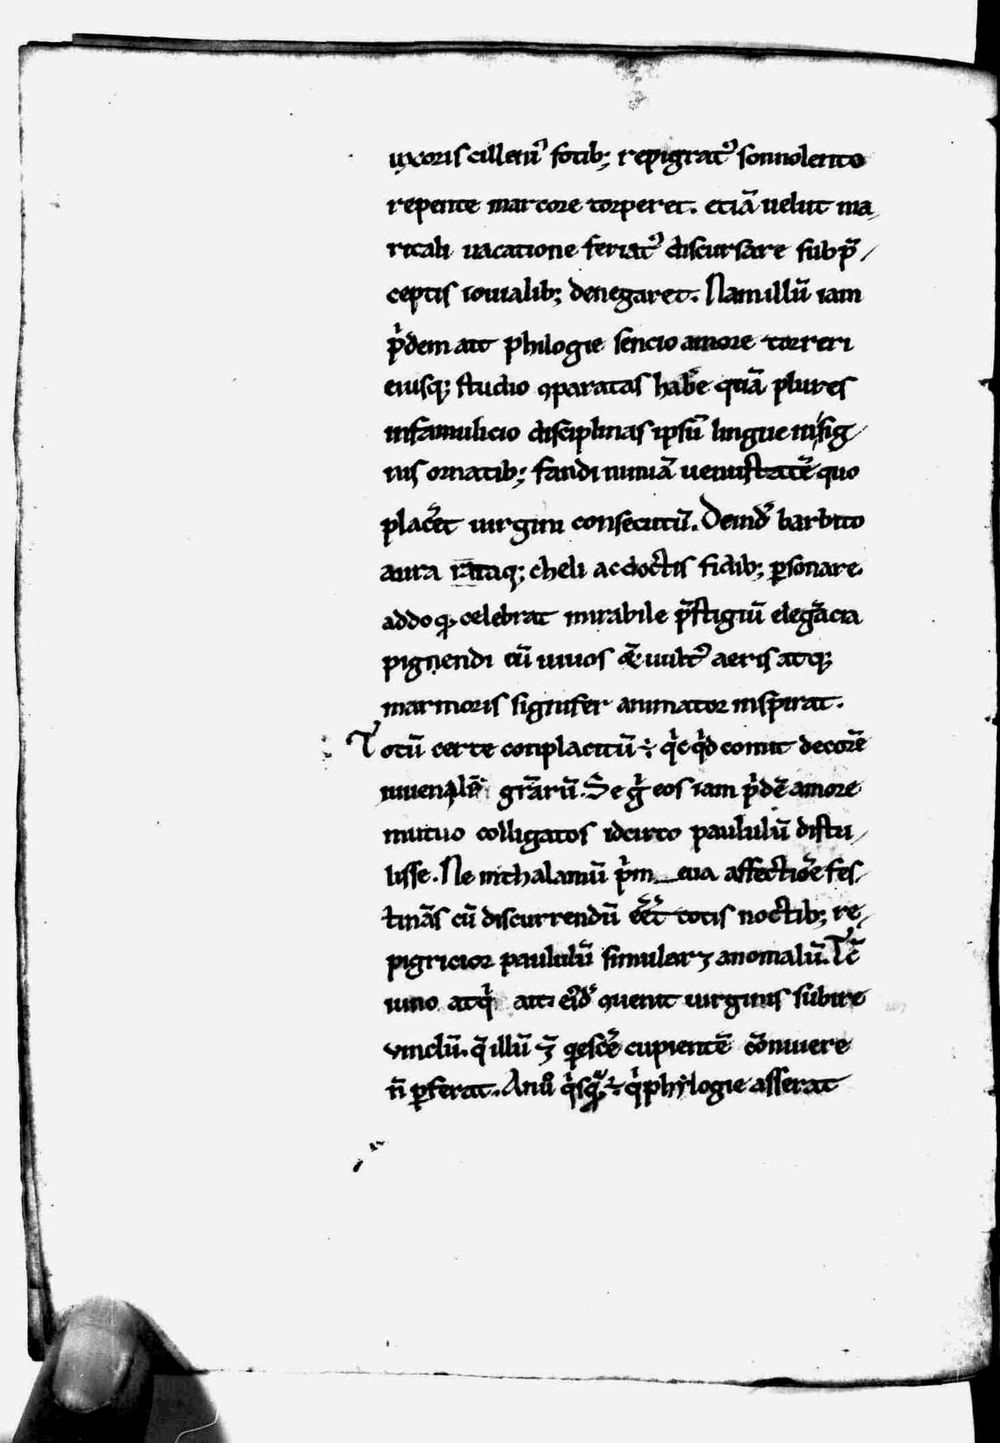 uxoris cilleniꝰ fotib; repigratꝰ somnolento
repente marcore torperet. etiã uelut ma
ritali uacatione feriatꝰ discursare sub p̃
ceptis iouialib; denegaret. Nam illũ iam
p̓dem ait philogie sencio amore torreri
eiusq; studio ꝯparatas habe quã plures
in famulicio disciplinas ipsũ lingue insig
nis ornatib; fandi nimiã uenustatẽ quo
placẽt uirgini consecutũ. Deinď barbito
aura rataq; cheli ac doctis fidib; ꝑsonare
addo qꝫ celebrat mirabile p̃stigiũ elegãcia
pignendi cũ uiuos &̃ uultꝰ aeris atqꝫ
marmoris signifer animator inspirat.
Totũ certe conplacitũ ÷ q̓cq̓d comit decorẽ
iuuenalẽ gr̃arũ. Se g̓ eos iam p̓dẽ amore
mutuo colligatos idcirco paululũ distu
lisse. Ne in thalamũ p̓m eua affectiõe fes
tinãs cũ discurrendũ eẽt totis noctib; re
pigricior paululũ simularꝫ anomalũ. Tc̃
iuno atq̓ ait. eiď ꝯuenit uirginis subire
vinclũ. q̃ illũ ꝫ̃ qescẽ cupientẽ cõniuere
ñ ꝑferat. An uͦ q̓sq̃ꝫ ÷ q̓ phylogie asserat